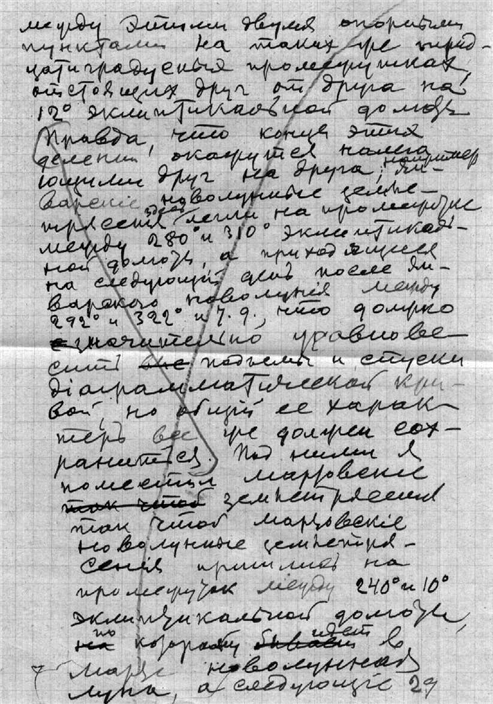 между этими двумя опорными
пунктами на таких же трид-
цатиградусных промежутках,
отстоящих друг от друга на
12° эклиптикальной долготы
Правда, что концы этих
делений окажутся налега
ющими друг на друга, например ян-
варские новолунные земле-
трясения легли на промежуток
между 280° и 310° эклиптикаль-
ной долготы, а приходящиеся
на следующий день после ян-
варского новолуния между
292° и 322° и т. д., что должно
значительно уравнове-
сить подъемы и спуски
діаграмматической кри-
вой, но общий ее харак-
теръ все же должен сох-
раниться. Под ними я
поместил мартовские
так чтоб землетрясения
так чтоб мартовскіе
новолунные землетря-
сенія пришлись на
промежуток между 340° и 10°
эклиптикальной долготы,
по которой идет в
марте новолунная
луна, а следующіе 29